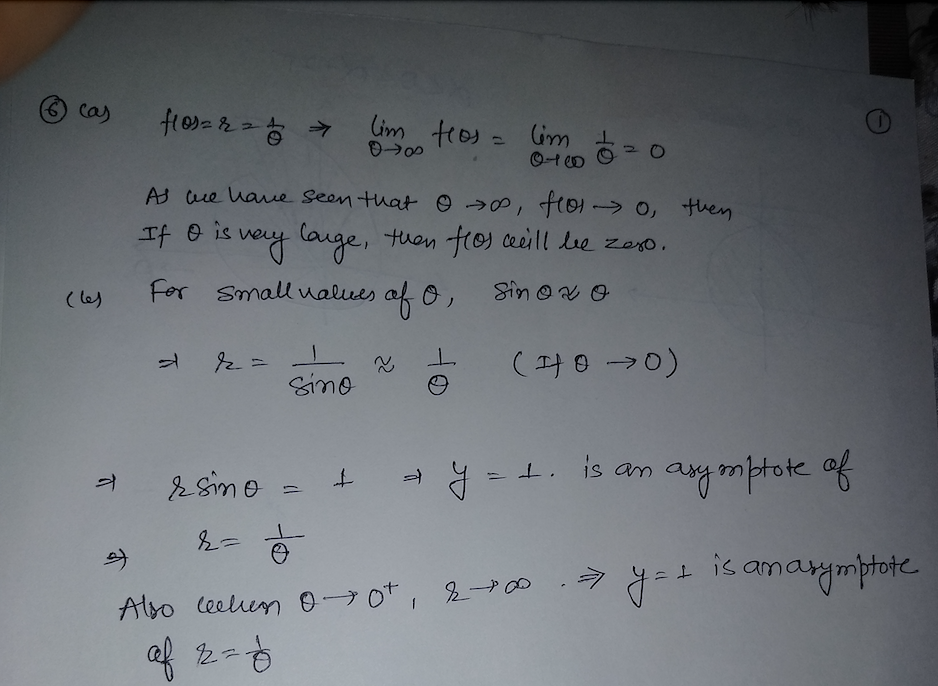 ⑥ (a) f(θ) = r = 1/θ ⇒ lim θ→∞ f(θ) = lim θ→∞ 1/θ = 0 ①
As we have seen that θ → ∞, f(θ) → 0, then
If θ is very large, then f(θ) will be zero.
(b) For small values of θ, sin θ ≈ θ
⇒ r = 1/sinθ ≈ 1/θ (If θ → 0)
⇒ r sin θ = 1 ⇒ y = 1. is an asymptote of
⇒ r = 1/θ
Also when θ → 0⁺, r → ∞. ⇒ y = 1 is an asymptote
of r = 1/θ